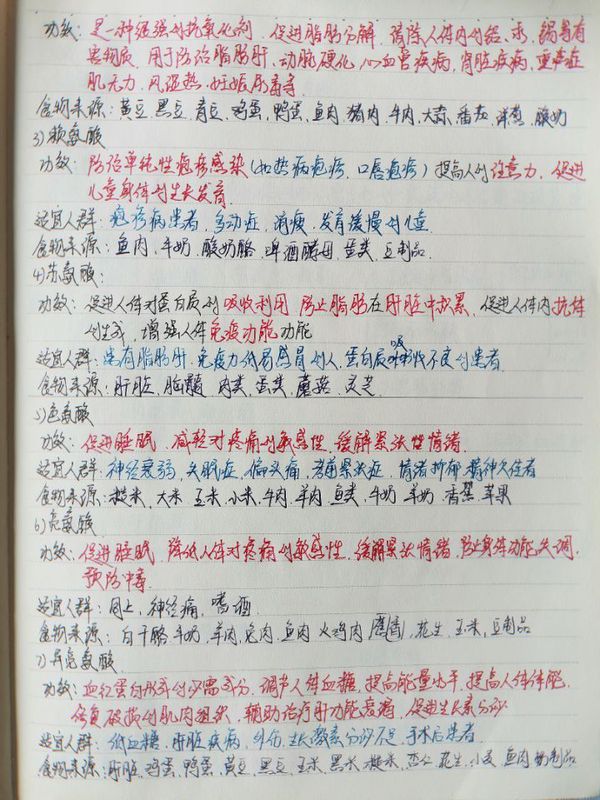 功效：是一种很强的抗氧化剂，促进脂肪分解，清除人体内的铅、汞、镉等有
害物质，用于防治脂肪肝，动脉硬化，心血管疾病，肾脏疾病，重症
肌无力，风湿热，妊娠肝毒等
食物来源：黄豆，黑豆，青豆，鸡蛋，鸭蛋，鱼肉，猪肉，牛肉，大蒜，番茄，洋葱，酸奶
3）赖氨酸
功效：防治单纯性疱疹感染（如热病疱疹，口唇疱疹）提高人的注意力，促进
儿童身体的生长发育
适宜人群：疱疹病患者，多动症，消瘦，发育缓慢的儿童
食物来源：鱼肉，牛奶，酸奶酪，啤酒酵母，蛋类，豆制品
4）苏氨酸：
功效：促进人体对蛋白质的吸收利用，防止脂肪在肝脏中积累，促进人体内抗体
的生成，增强人体免疫功能功能
适宜人群：患有脂肪肝，免疫力低易感冒的人，蛋白质吸收不良的患者
食物来源：肝脏，脑髓，肉类，蛋类，蘑菇，灵芝
5）色氨酸
功效：促进睡眠，减轻对疼痛的敏感性，缓解紧张性情绪
适宜人群：神经衰弱，失眠症，偏头痛，考前紧张症，情绪抑郁，精神欠佳者
食物来源：糙米，大米，玉米，小米，牛肉，羊肉，鱼类，牛奶，羊奶，香蕉，苹果
6）亮氨酸
功效：促进睡眠，降低人体对疼痛的敏感性，缓解紧张情绪，防止身体功能失调，
预防中毒
适宜人群：同上，神经痛，嗜酒
食物来源：白干酪，牛奶，羊肉，兔肉，鱼肉，火鸡肉，花生，玉米，豆制品
7）异亮氨酸
功效：血红蛋白形成的必需成分，调节人体血糖，提高能量水平，提高人体体能，
修复破损的肌肉组织，辅助治疗肝功能衰竭，促进生长素分泌
适宜人群：低血糖，肝脏疾病，外伤，生长激素分泌不足，手术后患者
食物来源：肝脏，鸡蛋，鸭蛋，黄豆，黑豆，玉米，黑米，糙米，杏仁，花生，小麦，鱼肉，奶制品